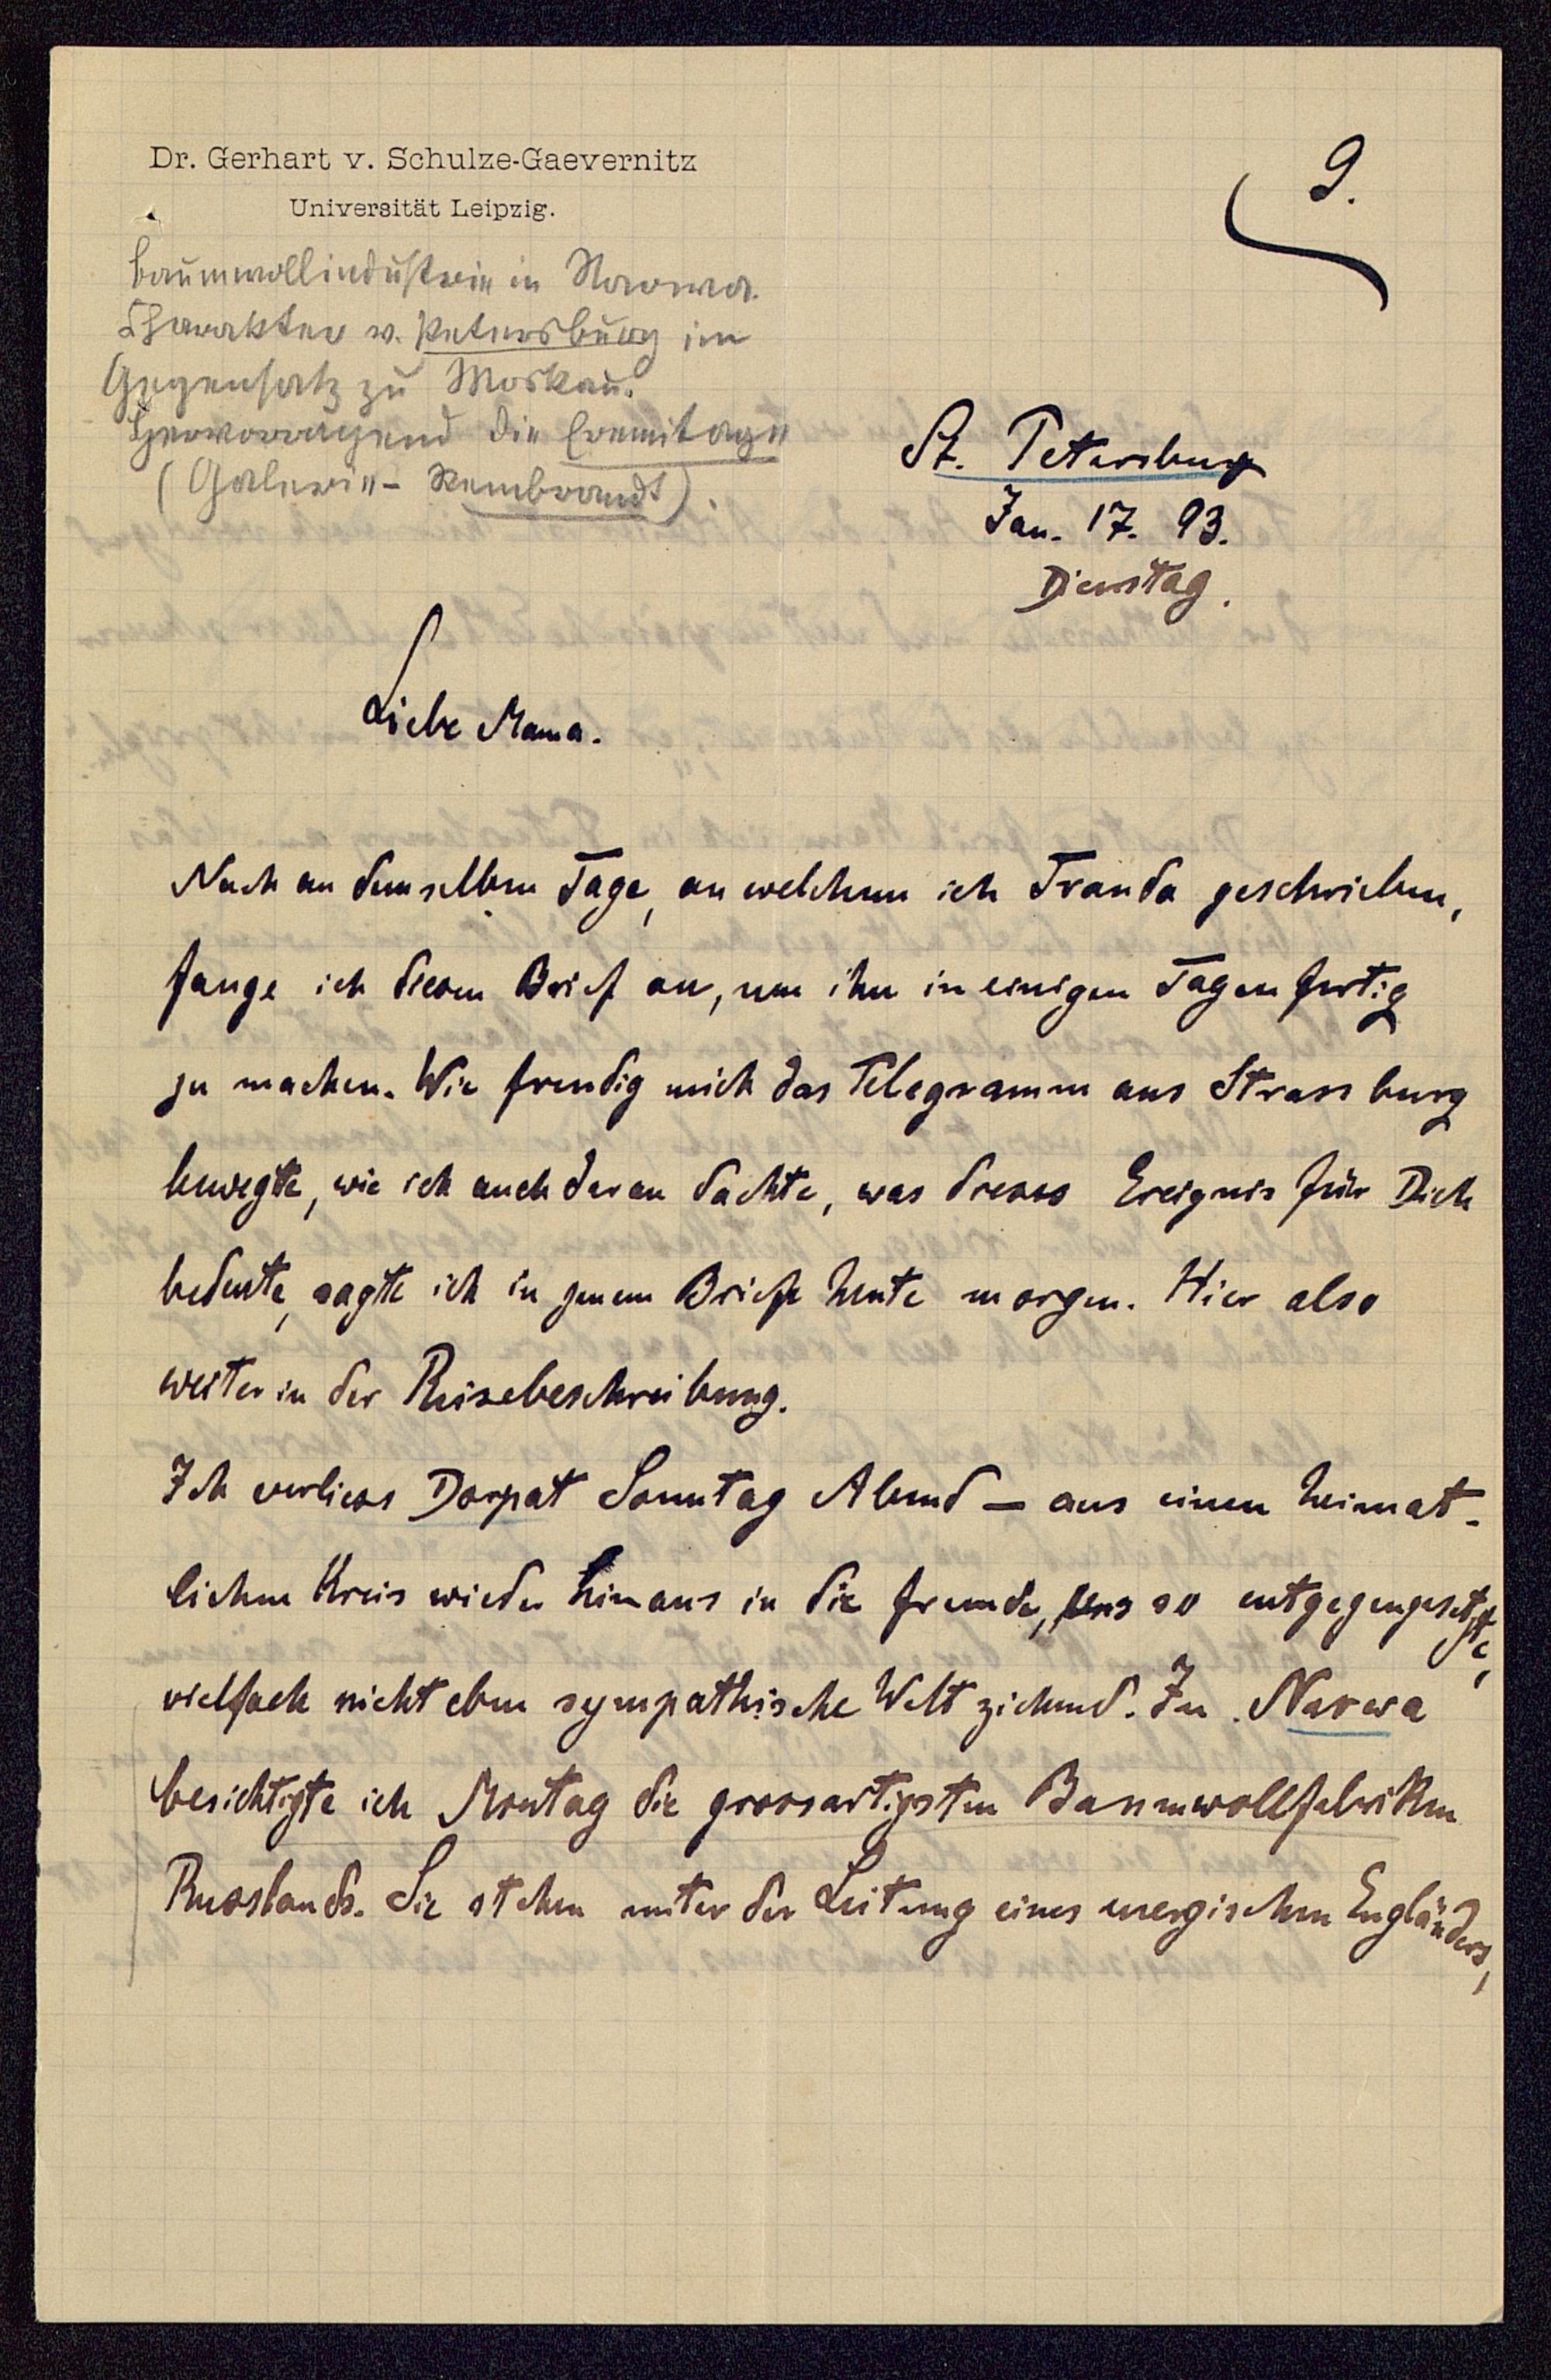 Dr. Gerhart v. Schulze-Gaevernitz
Universität Leipzig.
9.
Baumwollindustrie in Narwa.
Charakter v. Petersburg im
Gegensatz zu Moskau.
Hervorragend die Eremitage
(Galerie - Rembrandt).
St. Petersburg
Jan. 17. 93.
Dienstag.
Liebe Mama.
Noch an demselben Tage, an welchem ich Tranda geschrieben,
fange ich diesen Brief an, um ihn in einigen Tagen fertig
zu machen. Wie freudig mich das Telegramm aus Strassburg
bewegte, wie ich auch daran dachte, was dieses Ereignis für Dich
bedeute, sagte ich in jenem Briefe heute morgen. Hier also
weiter in der Reisebeschreibung.
Ich verliess Dorpat Sonntag Abend – aus einen heimat-
lichen Kreis wieder hinaus in die fremde, uns so entgegengesetzte,
vielfach nicht eben sympathische Welt ziehend. In Narwa
besichtigte ich Montag die grossartigsten Baumwollfabriken
Russlands. Sie stehen unter der Leitung eines energischen Engländers,